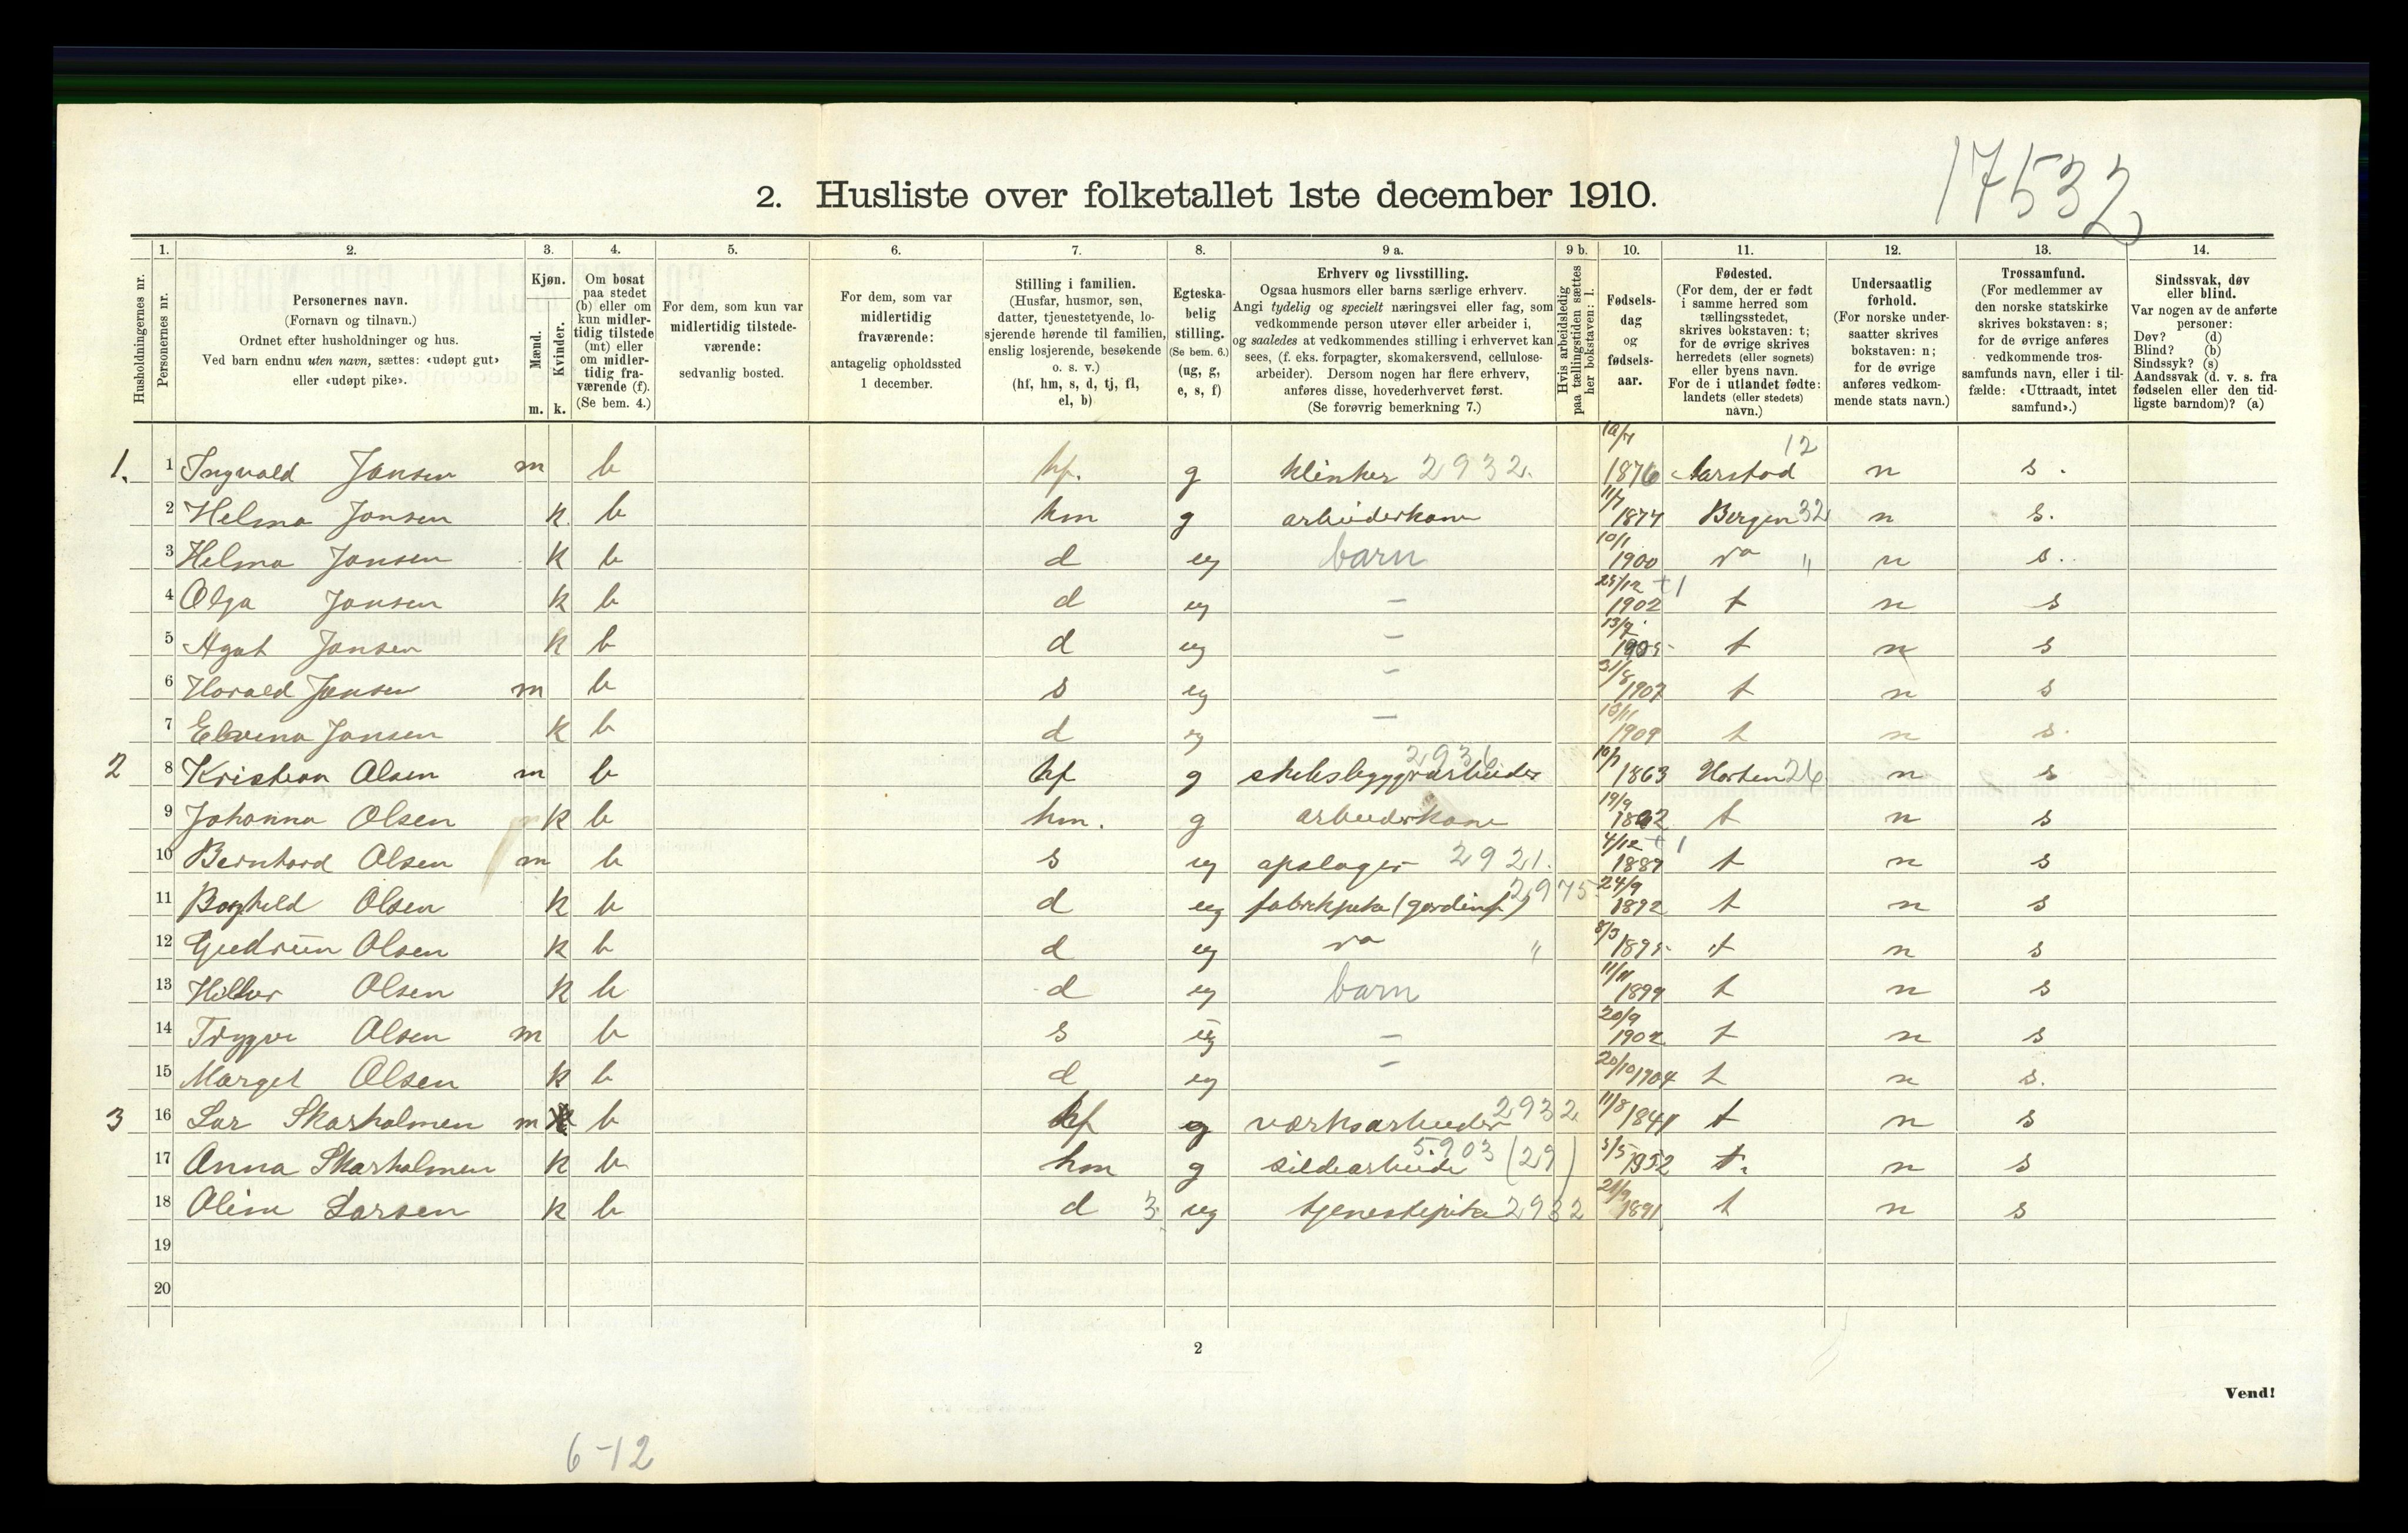 17532
2. Husliste over folketallet 1ste december 1910.
1. 2. 3. 4. 5. 6. 7. 8. 9 a. 9 b. 10. 11. 12. 13. 14.
Husholdningernes nr.
Personernes nr.
Personernes navn.
(Fornavn og tilnavn.)
Ordnet efter husholdninger og hus.
Ved barn endnu uten navn, sættes: «udøpt gut»
eller «udøpt pike».
Kjøn.
Mænd.
Kvinder.
m. k.
Om bosat
paa stedet
(b) eller om
kun midler-
tidig tilstede
(mt) eller
om midler-
tidig fra-
værende (f).
(Se bem. 4.)
For dem, som kun var
midlertidig tilstede-
værende:
sedvanlig bosted.
For dem, som var
midlertidig
fraværende:
antagelig opholdssted
1 december.
Stilling i familien.
(Husfar, husmor, søn,
datter, tjenestetyende, lo-
sjerende hørende til familien,
enslig losjerende, besøkende
o. s. v.)
(hf, hm, s, d, tj, fl,
el, b)
Egteska-
belig
stilling.
(Se bem. 6.)
(ug, g,
e, s, f)
Erhverv og livsstilling.
Ogsaa husmors eller barns særlige erhverv.
Angi tydelig og specielt næringsvei eller fag, som
vedkommende person utøver eller arbeider i,
og saaledes at vedkommendes stilling i erhvervet kan
sees, (f. eks. forpagter, skomakersvend, cellulose-
arbeider). Dersom nogen har flere erhverv,
anføres disse, hovederhvervet først.
(Se forøvrig bemerkning 7.)
Hvis arbeidsledig
paa tællingstiden sættes
her bokstaven: l.
Fødsels-
dag
og
fødsels-
aar.
Fødested.
(For dem, der er født
i samme herred som
tællingsstedet,
skrives bokstaven: t;
for de øvrige skrives
herredets (eller sognets)
eller byens navn.
For de i utlandet fødte:
landets (eller stedets)
navn.)
Undersaatlig
forhold.
(For norske under-
saatter skrives
bokstaven: n;
for de øvrige
anføres vedkom-
mende stats navn.)
Trossamfund.
(For medlemmer av
den norske statskirke
skrives bokstaven: s;
for de øvrige anføres
vedkommende tros-
samfunds navn, eller i til-
fælde: «Uttraadt, intet
samfund».)
Sindssvak, døv
eller blind.
Var nogen av de anførte
personer:
Døv? (d)
Blind? (b)
Sindssyk? (s)
Aandssvak (d. v. s. fra
fødselen eller den tid-
ligste barndom)? (a)
1. 1 Ingvald Jansen m b hf. g klinker 2932. 1876 Aarstad 12 n s.
2 Helma Jansen k b hm g arbeiderkone 11/7 1877 Bergen 32 n s.
3 Helma Jansen k b d ug barn 10/1 1900 " n s.
4 Olga Jansen k b d ug - 25/12 1902 t n s
5 Agat Jansen k b d ug - 1905 t n s
6 Harald Jansen m b s ug - 31/8 1907 t n s
7 Elvina Jansen k b d ug - 1909 t n s.
2 8 Kristian Olsen m b hf g 1863 Horten 26 n s
9 Johanna Olsen k b hm. g arbeiderkone 19/9 t n s
10 Bernhard Olsen m b s ug opslager 2921. 4/12 +1 t n s
11 Boghild Olsen k b d ug 2975 24/9 1892 t n s
12 Gudrun Olsen k b d ug " 8/3 1895 t n s
13 Olsen k b d ug barn 11/11 1899 t n s
14 Trygve Olsen m b s ug - 20/9 1902 t n s
15 Marget Olsen k b d ug - 20/10 1904 t n s.
3 16 Lar Skarholmen m b hf g værksarbeider 2932 11/8 1841 t n s
17 Anna Skarholmen k b hm g sildearbeide 5.903 (29) t. n s
18 Oline Larsen k b d 3 ug tjenestepike 2932 21/9 1891 t n s
19
20
2
Vend!
6-12